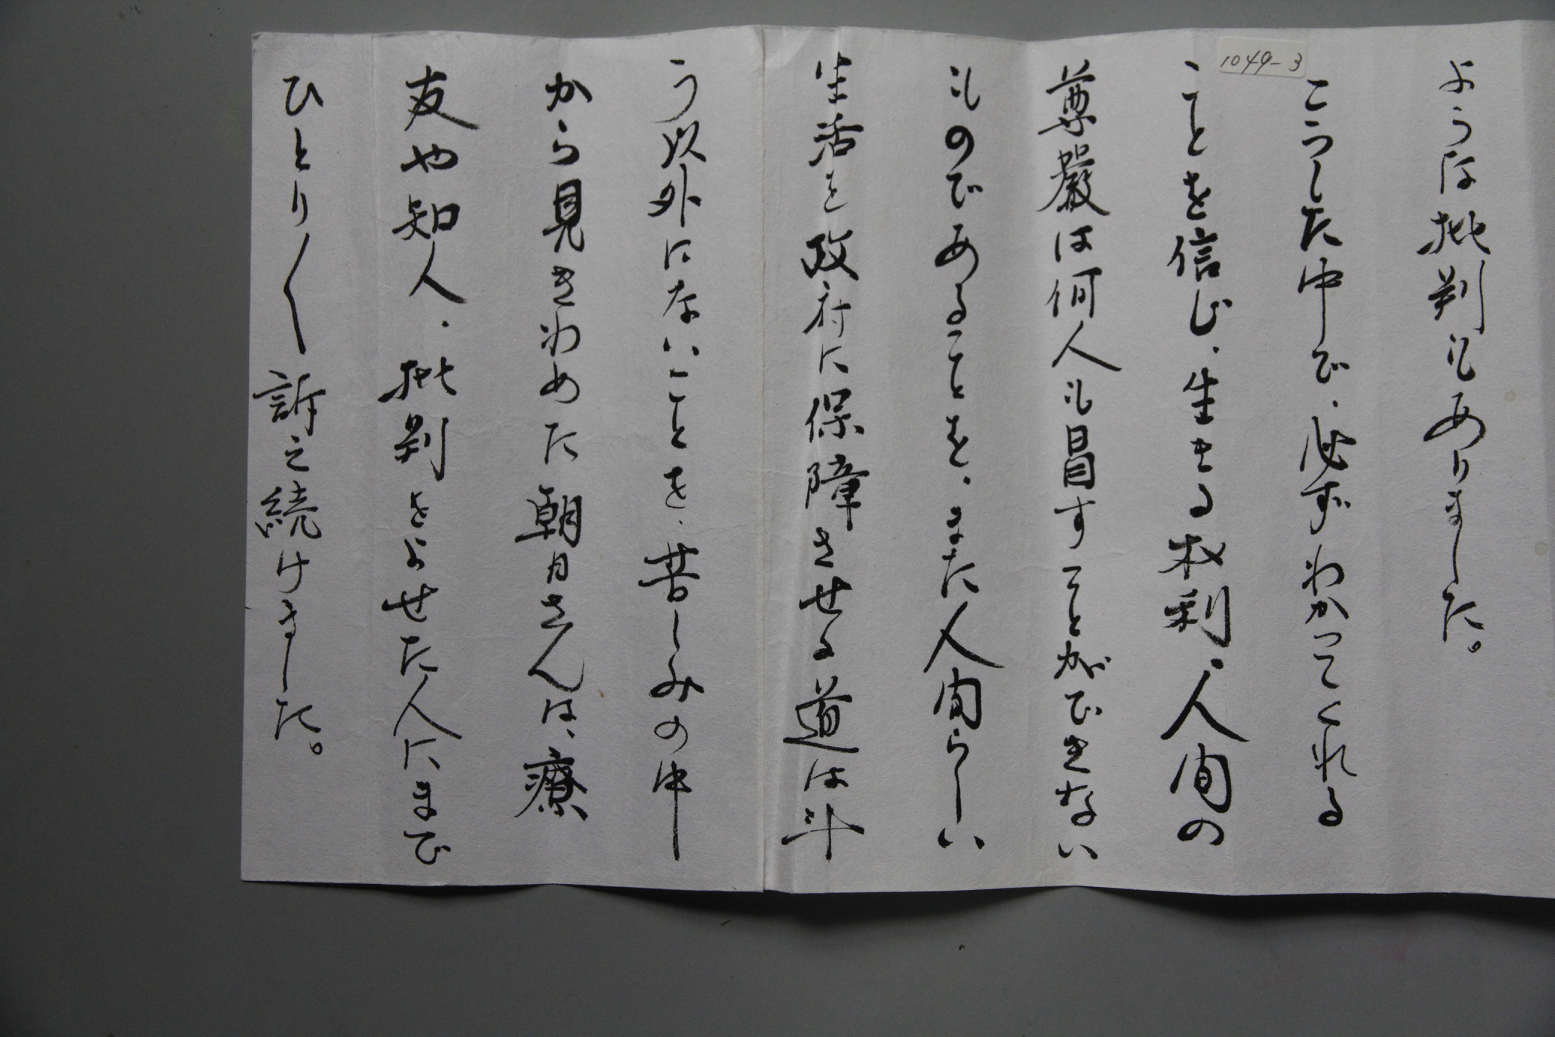 ような批判もありました。
1049-3
こうした中で、必ずわかってくれる
ことを信じ、生きる权利、人间の
尊厳は何人も冒すことができない
ものであることを、また人间らしい
生活を政府に保障させる道は斗
う以外にないことを、苦しみの中
から見きわめた朝日さんは、療
友や知人、批判をよせた人にまで
ひとり〱訴え続けました。